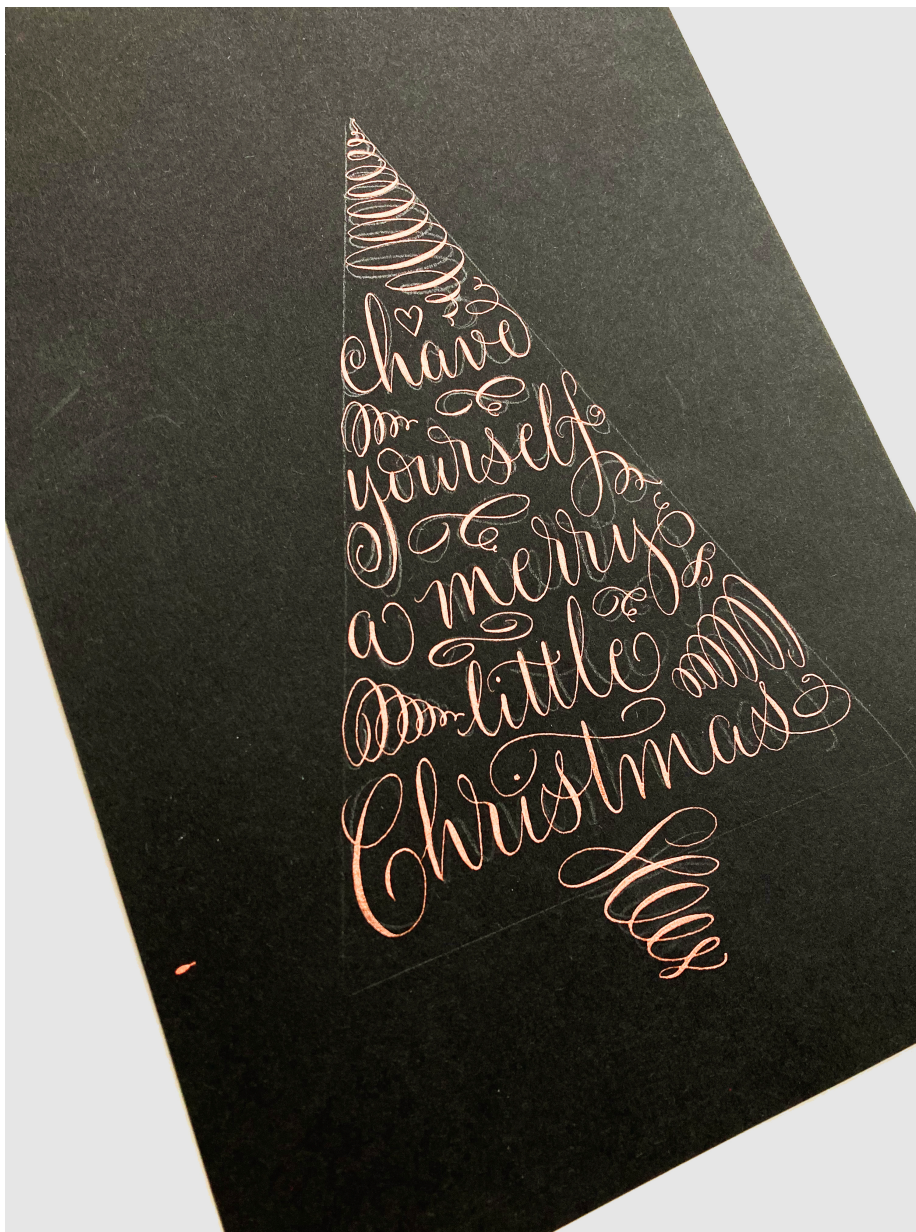 have
yourself
a merry
little
Christmas